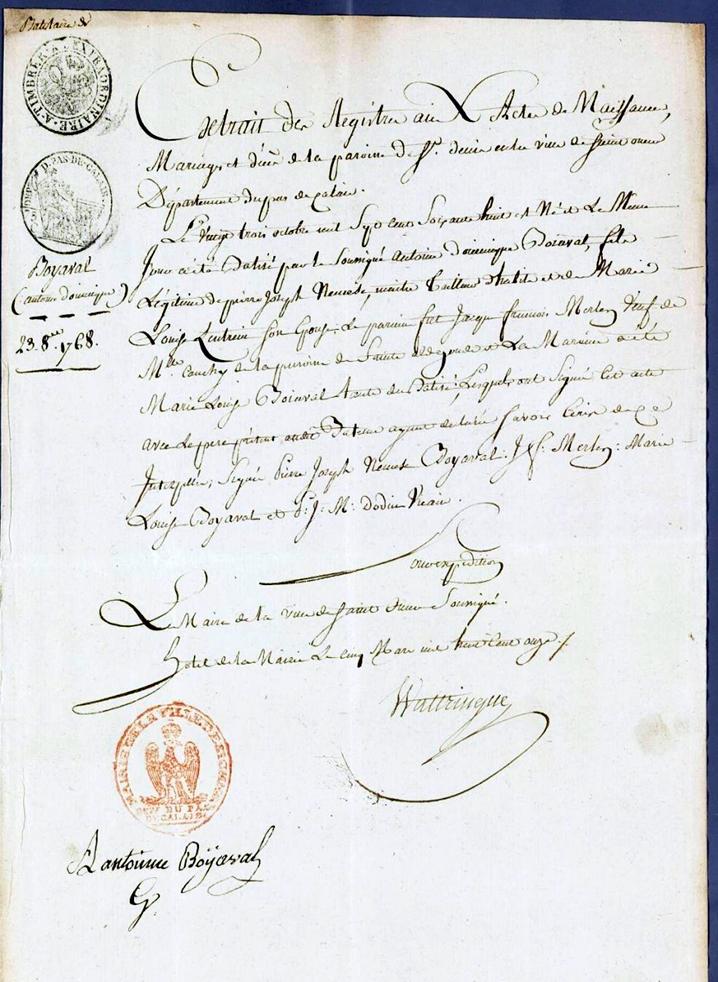 TIMBRE A L'EXTRAORDINAIRE
D. PAS-DE-CALAIS
Boyaval
(antoine dominique)
23. 8.bre 1768.
Extrait des Registres aux Actes de Naissances,
Mariages et décès de la paroisse de St. denis en la ville de Saint omer
Département du pas de calais.
Le vingt trois octobre mil Sept cent Soixante huit est Né et Le Meme
Jour a été Batisé par le Soussigné antoine dominique Boiaval, fils
Légitime de pierre Joseph Nemese, maitre Tailleur d'habits et de Marie
Louise Son Epouse. Le parain fut Jacque francois Merlen Veuf de
Mlle. de la paroisse de Sainte aldegonde et La Maraine a été
Marie Louise Boiaval tante du Batisé, Lesquels ont Signé cet acte
avec le pere présent ayant déclaré Savoir Ecrire de ce
Interpellés; Signé Pierre Joseph Nemese Boyaval. J. f. Merlen. Marie
Louise Boyaval et J. M. Dodin Vicaire.
Pour expedition
Le Maire de la ville de Saint Omer Soussigné.
hotel de la Mairie Le cinq Mars mil huit cent onze /.
Wattringue
MAIRIE DE LA VILLE DE ST OMER
DEPT. DU PAS
DE CALAIS
antoinne Boÿaval